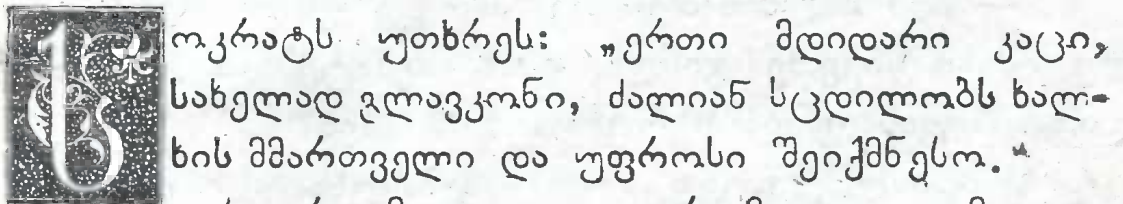 სოკრატს უთხრეს: „ერთი მდიდარი კაცი,
სახელად გლავკონი, ძალიან სცდილობს ხალ-
ხის მმართველი და უფროსი შეიქმნესო.“